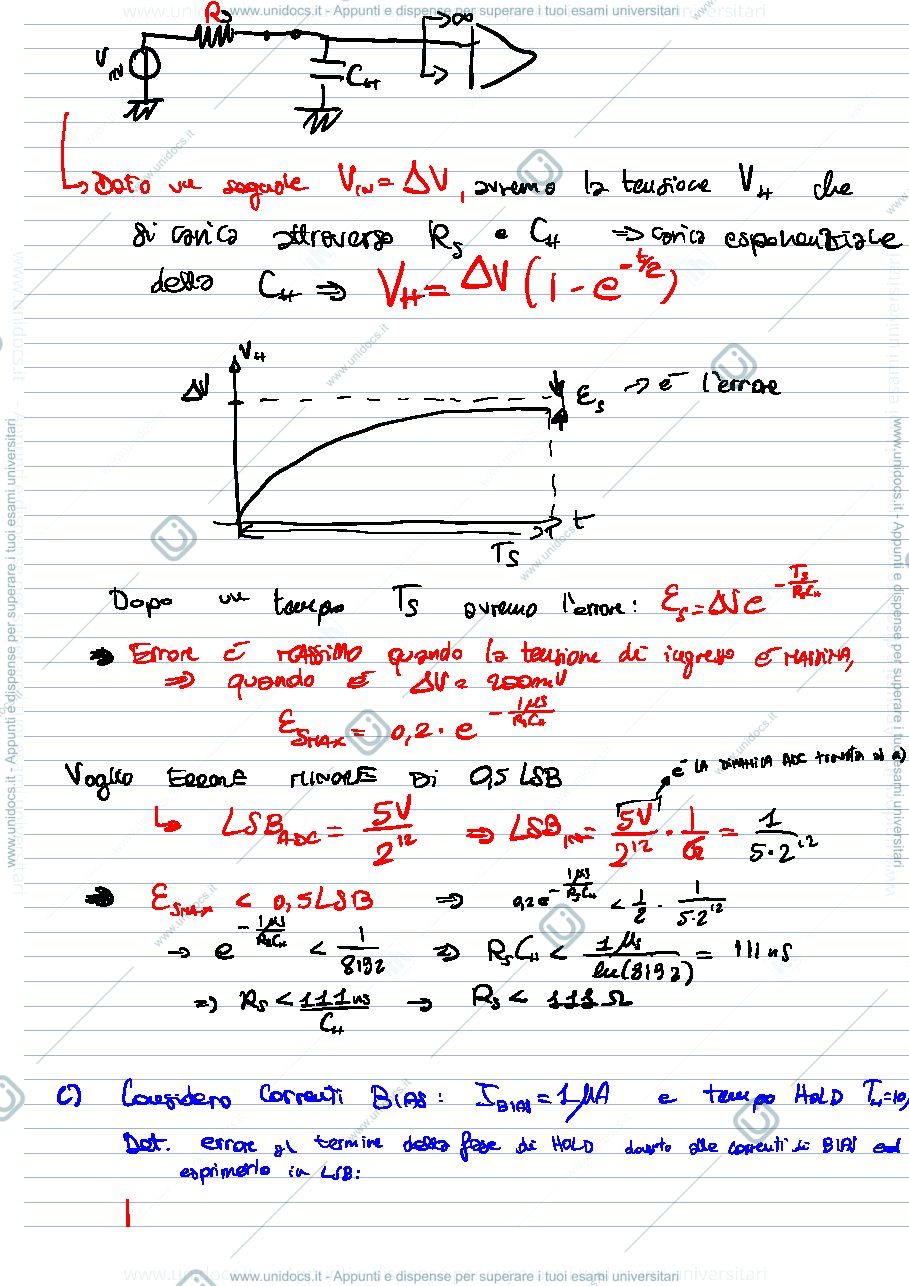 www.unidocs.it - Appunti e dispense per superare i tuoi esami universitari
R
∞
V_IN
C_H
↳ Dato un segnale V_IN = ΔV, avremo la tensione V_H che
si carica attraverso R_S e C_H ⇒ carica esponenziale
della C_H ⇒ V_H = ΔV (1 - e^{-t/τ})
V_H
ΔV
ε_S → è l'errore
t
T_S
Dopo un tempo T_S avremo l'errore: ε_S = ΔV e^{-T_S/(R_S C_H)}
→ Errore è MASSIMO quando la tensione di ingresso è MASSIMA,
⇒ quando è ΔV = 200mV
ε_SMAX = 0,2 · e^{-1μs/(R_S C_H)}
Voglio ERRORE MINORE DI 0,5 LSB
è LA DINAMICA ADC trovata al a)
↳ LSB_ADC = 5V/2^12 ⇒ LSB_IN = 5V/2^12 · 1/G = 1/(5·2^12)
→ ε_SMAX < 0,5 LSB ⇒ 0,2 e^{-1μs/(R_S C_H)} < 1/2 · 1/(5·2^12)
→ e^{-1μs/(R_S C_H)} < 1/8192 ⇒ R_S C_H < 1μs/ln(8192) = 111 ns
⇒ R_S < 111ns/C_H → R_S < 111 Ω
C) Considero Correnti BIAS: I_BIAS = 1μA e tempo HOLD T_H=10,
Det. errore al termine della fase di HOLD dovuto alle correnti di BIAS ed
esprimerlo in LSB:
www.unidocs.it - Appunti e dispense per superare i tuoi esami universitari